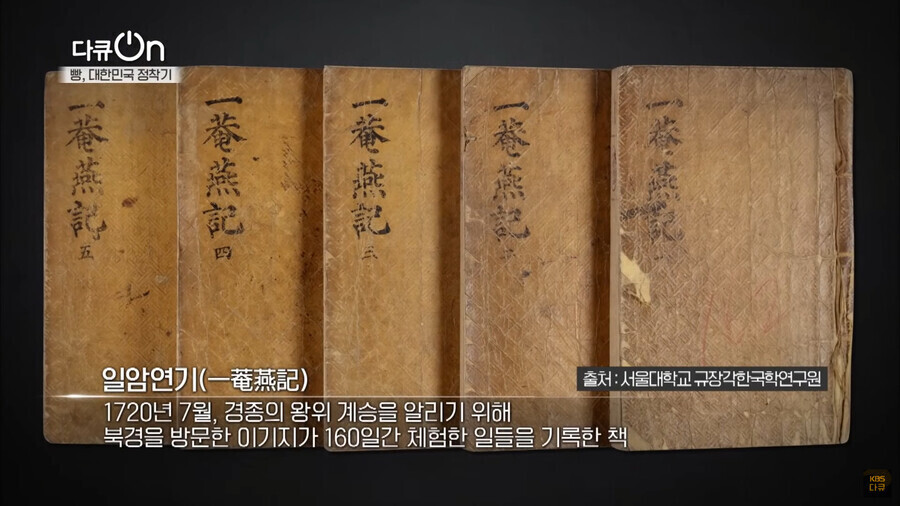 다큐On
빵, 대한민국 정착기
一菴燕記
五
一菴燕記
四
一菴燕記
三
一菴燕記
一菴燕記
일암연기(一菴燕記)
출처 : 서울대학교 규장각한국학연구원
1720년 7월, 경종의 왕위 계승을 알리기 위해
북경을 방문한 이기지가 160일간 체험한 일들을 기록한 책
KBS
다큐